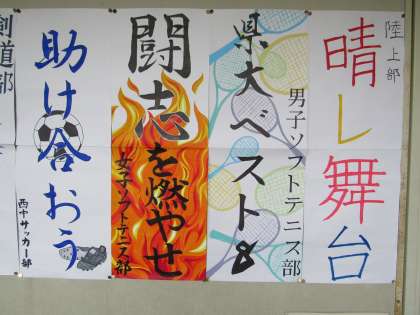 陸上部
晴レ舞台
県大ベスト8
男子ソフトテニス部
闘志を燃やせ
女子ソフトテニス部
助け合おう
西中サッカー部
剣道部